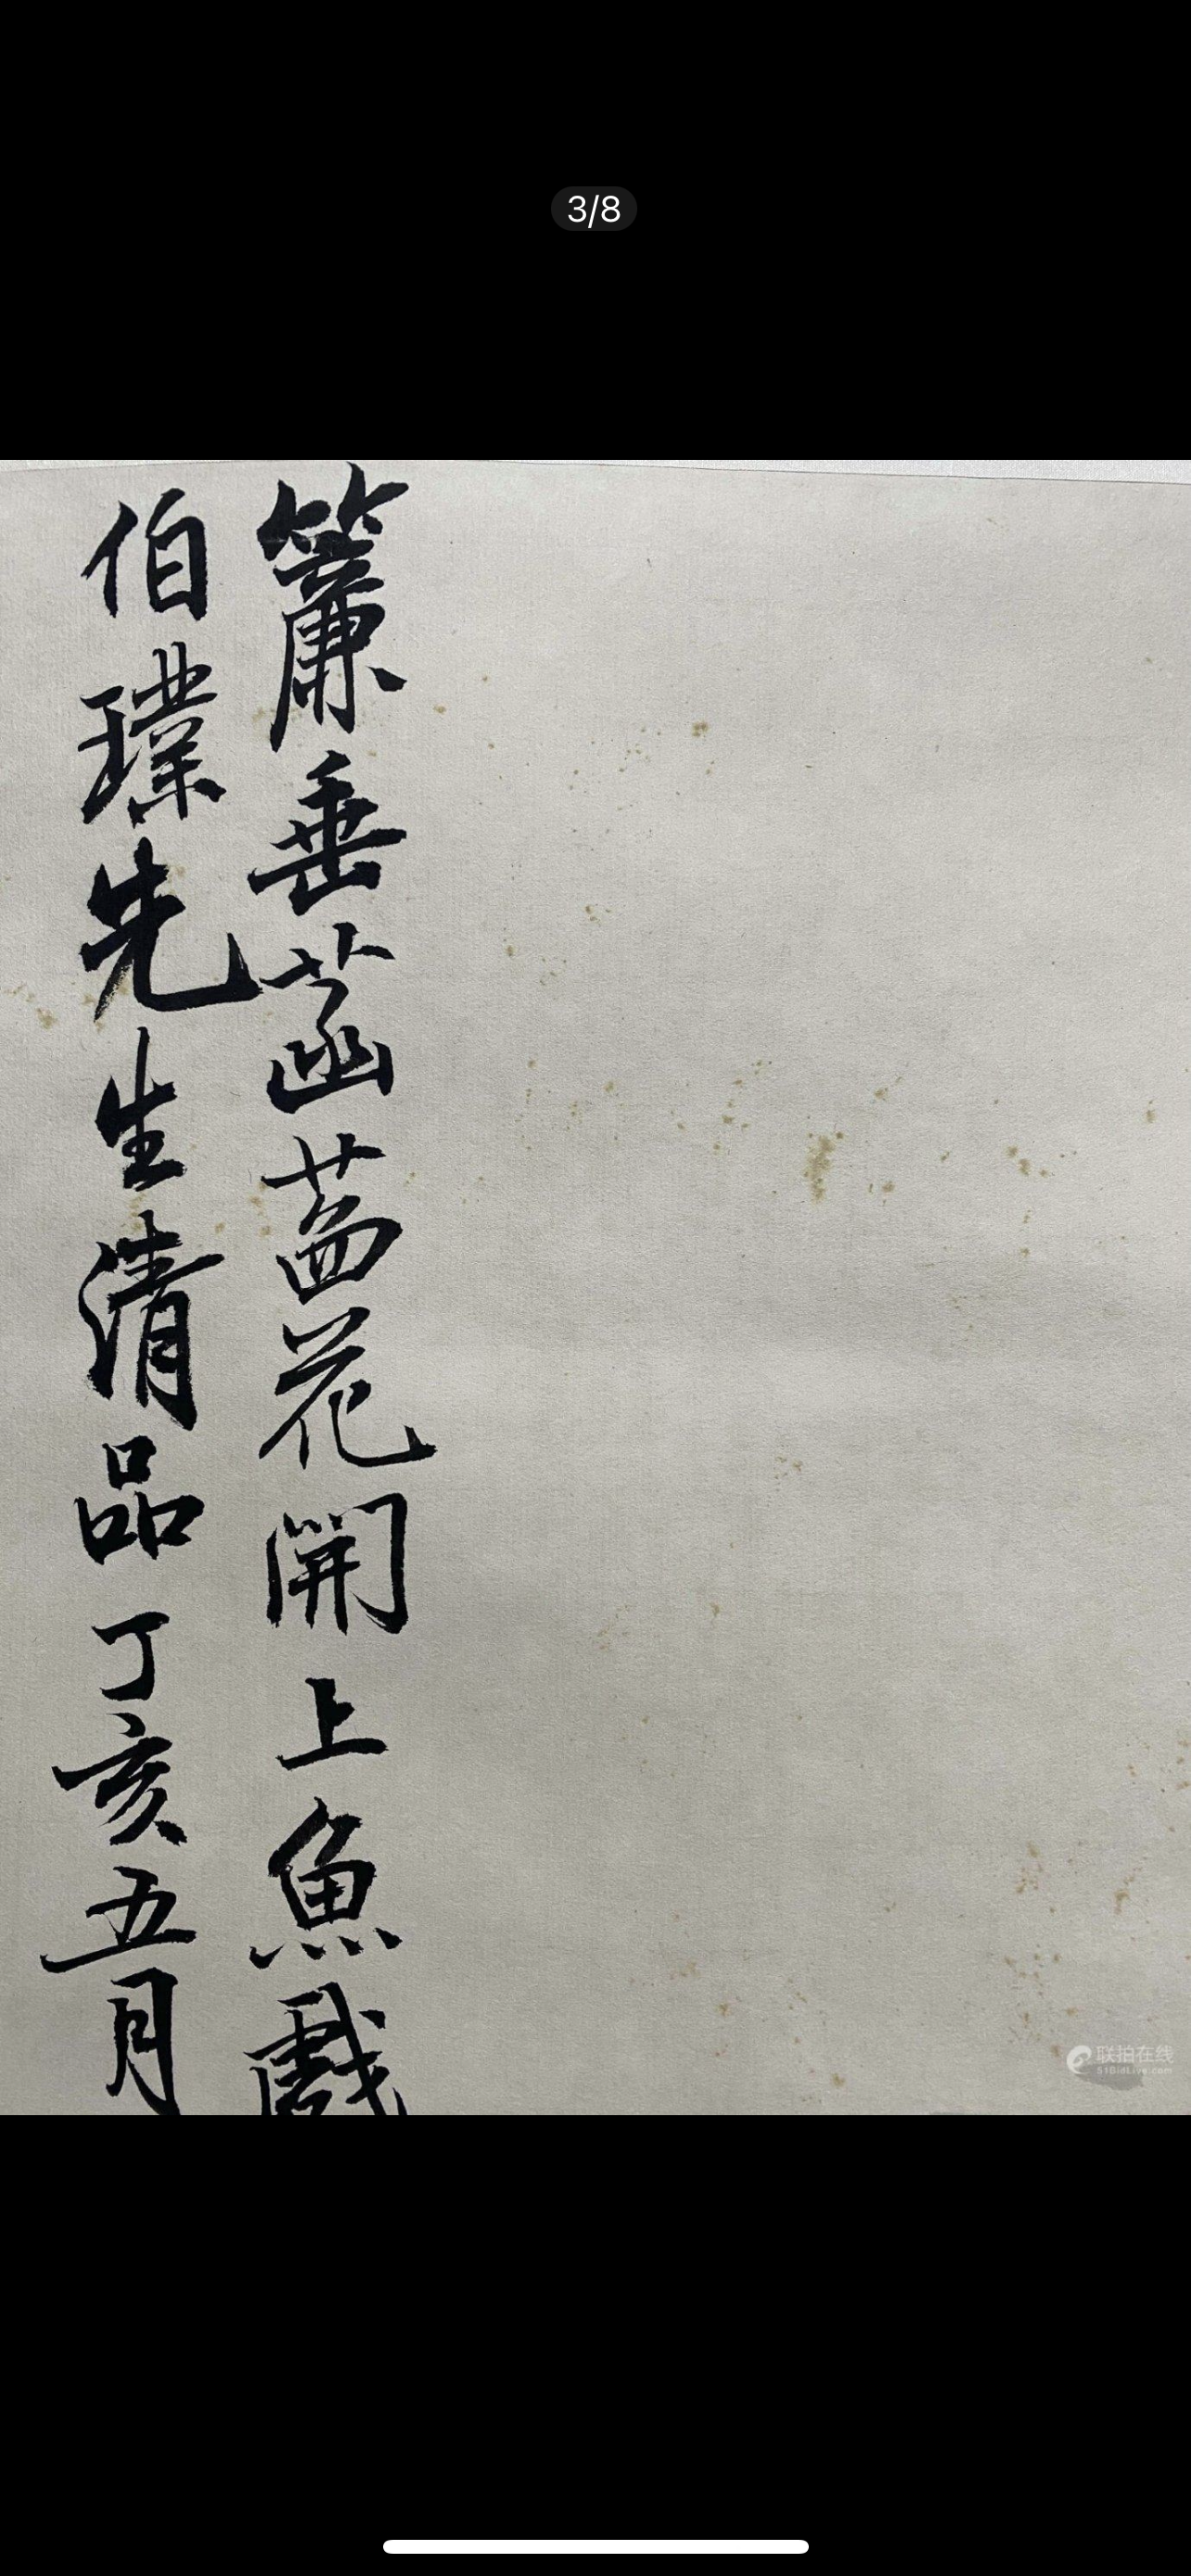 3/8
簾垂菡萏花開上魚戲
伯璞先生清品丁亥五月
联拍在线
51BidLive.com